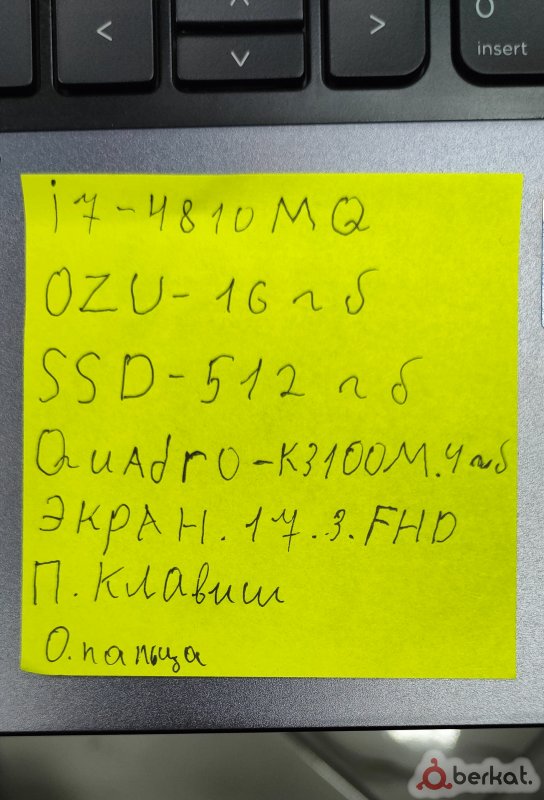 <
^
˅
>
0
insert
i7-4810MQ
OZU-16 гб
SSD-512 гб
QuAdrO-K3100M.4гб
ЭКРАН.17.3.FHD
П.Клавиш
О.пальца
berkat.